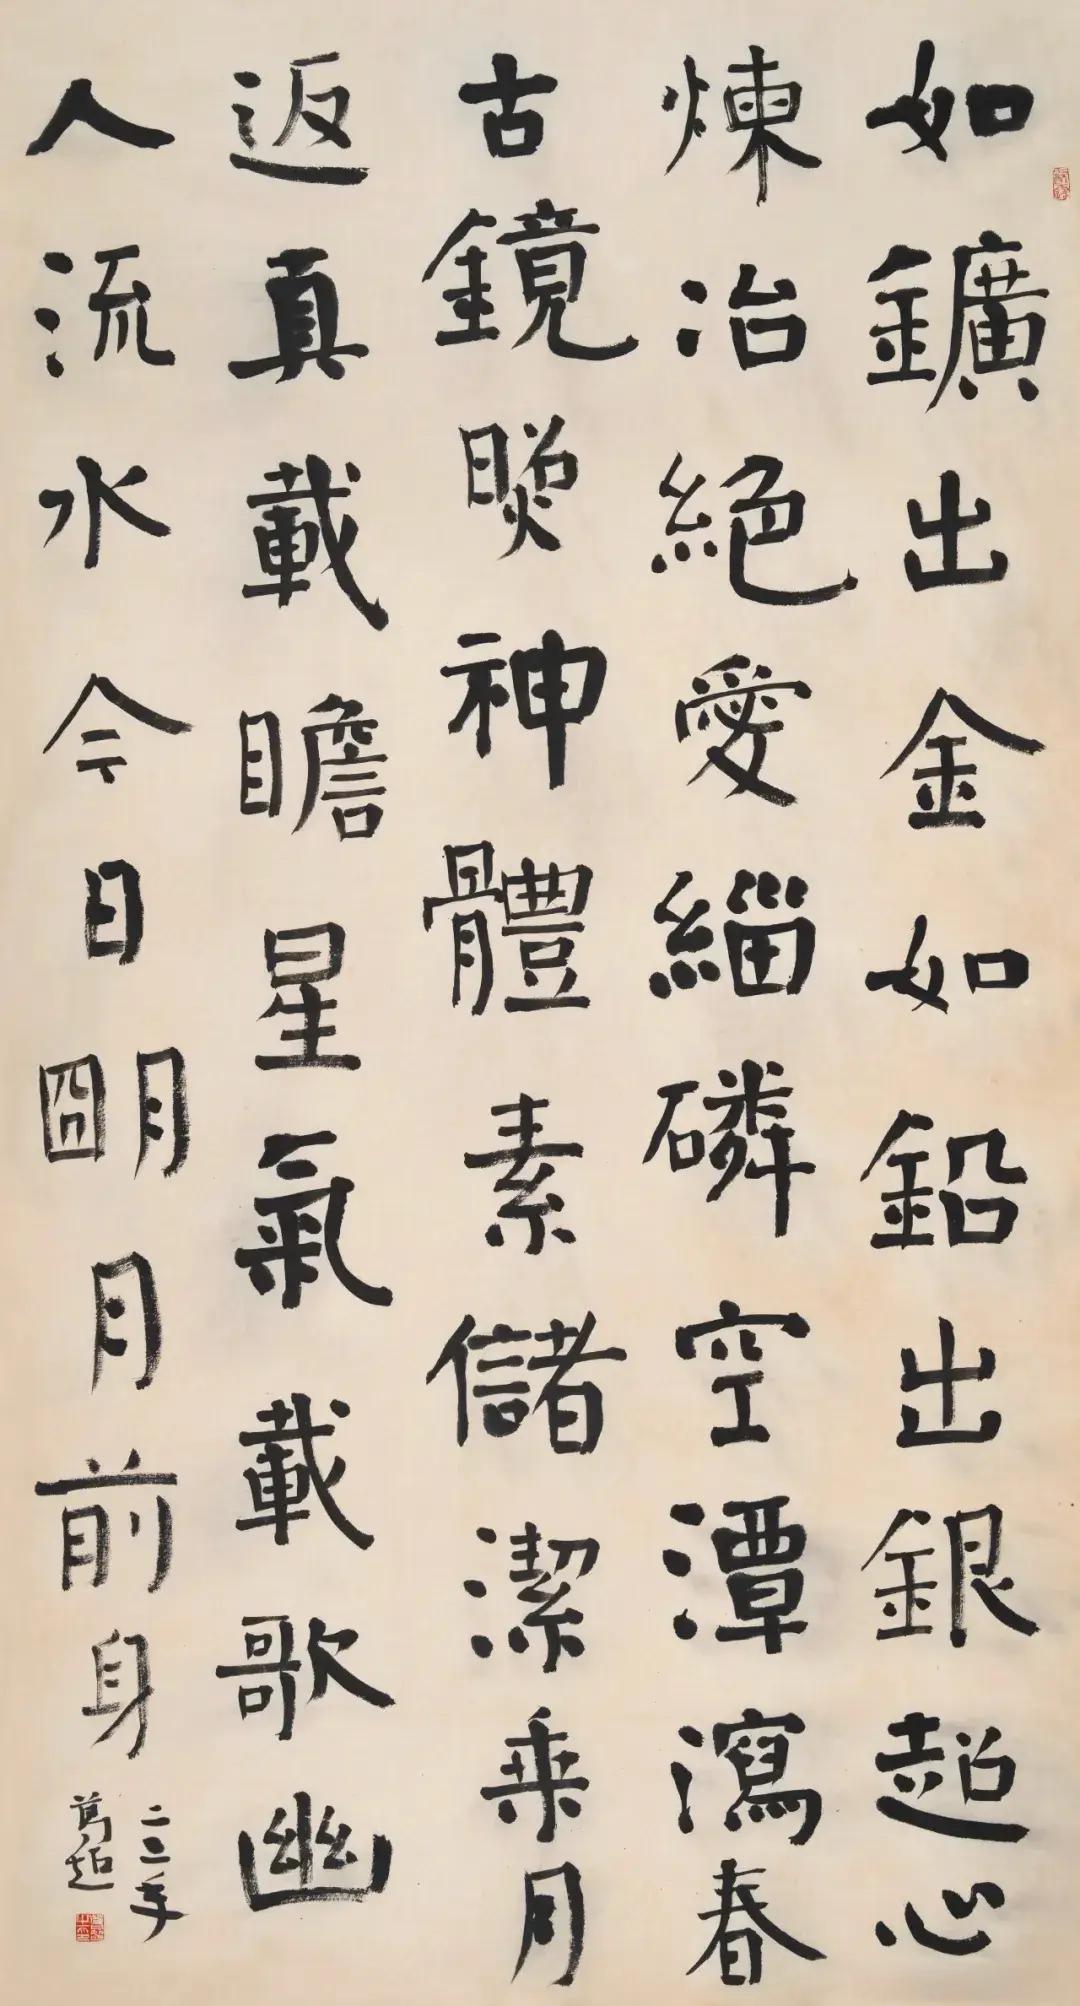 如鑛出金如鉛出銀超心
煉冶絕愛緇磷空潭瀉春
古鏡照神體素儲潔乗月
返真載瞻星氣載歌幽
人流水今日朙月前身
二二年